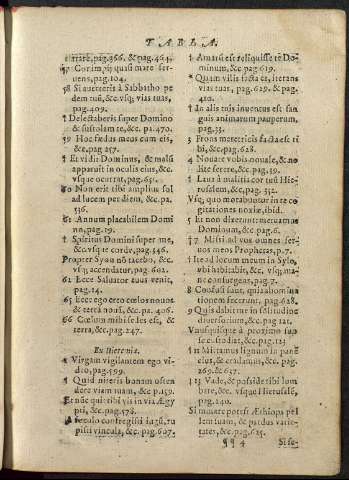 TABLA.
eritate, pag.356. & pag.464.
57 Coram, quasi mare fer-
uens, pag.104.
58 Si auerteris à Sabbatho pe
dem tuũ, &c. vsq; vias tuas,
pag.409.
† Delectaberis super Domino
& sustolam te, &c. pa. 470.
59 Hoc fœdus meum cum eis,
&c. pag 257.
† Et vidit Dominus, & malũ
apparuit in oculis eius, &c.
vsque occurrat, pag.651.
60 Non erit tibi amplius sol
ad lucem per diem, &c. pa.
536.
61 Annum placabilem Domi
no, pag.19.
† Spiritus Domini super me,
&c. vsq; corde, pag.546.
Propter Syon nõ tacebo, &c.
vsq; accendatur, pag.602.
62 Ecce Saluator tuus venit,
pag.14.
65 Ecce ego creo cœlos nouos
& terrã nouã, &c. pa. 406.
66 Cœlum mihi sedes est, &
terra, &c. pag.247.
Ex Hieremia.
1 Virgam vigilantem ego vi-
deo, pag.599.
2 Quid niteris bonam osten
dere viam tuam &c p.159.
Et núc qui: tibi vis in via Ægy
pti, &c. pag.578.
A sæculo confregisti iugũ, ru
pisti vincula, &c. pag.607.
† Amarũ est reliquisse te Do-
minum, &c. pag.619.
* Quam vilis facta es, iterans
vias tuas, pag.629. & pag.
420.
† In alis tuis inuentus est san
guis animarum pauperum,
pag.33.
3 Frons meretricis facta est ti
bi, &c. pag.628.
4 Nouate vobis nouale, & no
lite serere, &c. pag.59.
† Laua à malitia cor tuũ Hie-
rusalem, &c. pag.352.
Vsq; quo morabuntur in te co
gitationes noxiæ, ibid.
5 Et non dixerunt: metuamus
Dominum, &c. pag.6.
†7 Misi ad vos omnes ser-
uos meos Prophetas, p.7.
† Ite ad locum meum in Sylo,
vbi habitabit, &c. vsq; ma-
ne consurgens, pag.7.
8 Confusi sunt, quia abomina
tionem fecerunt, pag.628.
9 Quis dabit me in solitudine
diuersorium, &c. pag 121.
Vnusquisque à proximo suo
se custodiat, pag.123
11 Mittamus lignum in panẽ
eius, & eradamus, &c. pag.
269. & 657.
13 Vade, & posside tibi lum
bare, &c. vsque Hierusalẽ,
pag.240.
Si mutare potest Æthiops pel
lem suam, & pardus varie-
tates, &c. pag.625.
¶¶ 4 Si se-